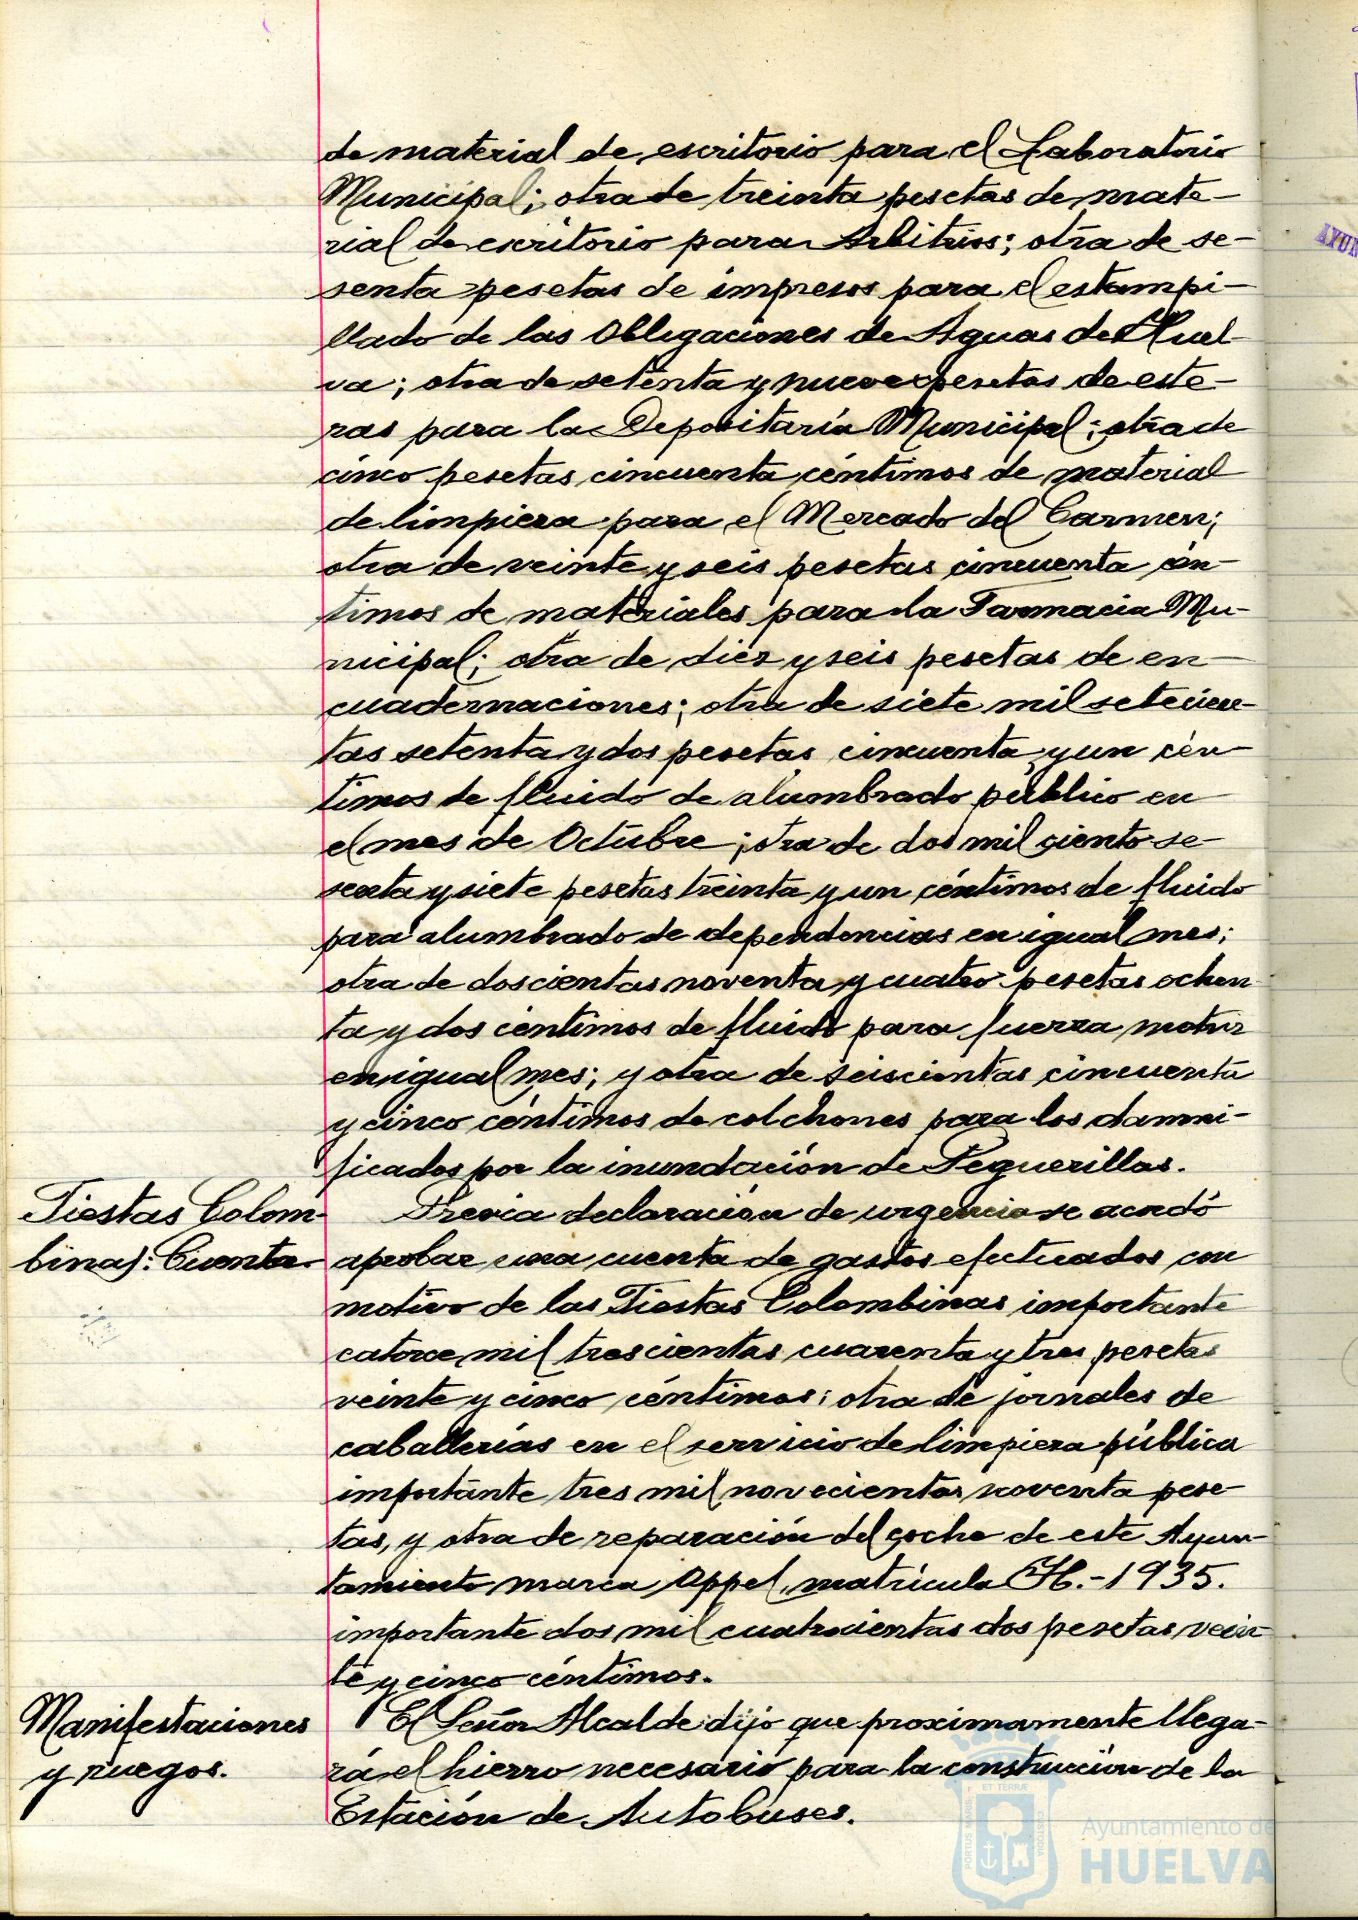 de material de escritorio para el Laboratorio
Municipal; otra de treinta pesetas de mate-
rial de escritorio para Arbitrios; otra de se-
senta pesetas de impresos para el estampi-
llado de las Obligaciones de Aguas de Huel-
va; otra de setenta y nueve pesetas de este-
ras para la Depositaría Municipal; otra de
cinco pesetas cincuenta céntimos de material
de limpieza para el Mercado del Carmen;
otra de veinte y seis pesetas cincuenta cén-
timos de materiales para la Farmacia Mu-
nicipal; otra de diez y seis pesetas de en-
cuadernaciones; otra de siete mil setecien-
tas setenta y dos pesetas cincuenta y un cén-
timos de fluido de alumbrado público en
el mes de Octubre; otra de dos mil ciento se-
senta y siete pesetas treinta y un céntimos de fluido
para alumbrado de dependencias en igual mes;
otra de doscientas noventa y cuatro pesetas ochen
ta y dos céntimos de fluido para fuerza motriz
en igual mes; y otra de seiscientas cincuenta
y cinco céntimos de colchones para los damni-
ficados por la inundación de Peguerillas.
Fiestas Colom-
binas: Cuenta
Previa declaración de urgencia se acordó
aprobar una cuenta de gastos efectuados con
motivo de las Fiestas Colombinas importante
catorce mil trescientas cuarenta y tres pesetas
veinte y cinco céntimos; otra de jornales de
caballerías en el servicio de limpieza pública
importante tres mil novecientas noventa pese-
tas, y otra de reparación del coche de este Ayun-
tamiento marca Oppel, matrícula H.-1935.
importante dos mil cuatrocientas dos pesetas vein-
te y cinco céntimos.
Manifestaciones
y ruegos.
El Señor Alcalde dijo que proximamente llega-
rá el hierro necesario para la construcción de la
Estación de Autobuses.
PORTUS MARIS ET TERRÆ CUSTODIA
Ayuntamiento de
HUELVA